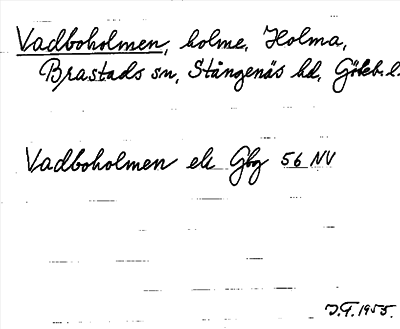 Vadboholmen, holme, Holma,
Brastads sn, Stångenäs hd, Göteb. l.
Vadboholmen ek Gbg 56 NV
J.F. 1955.